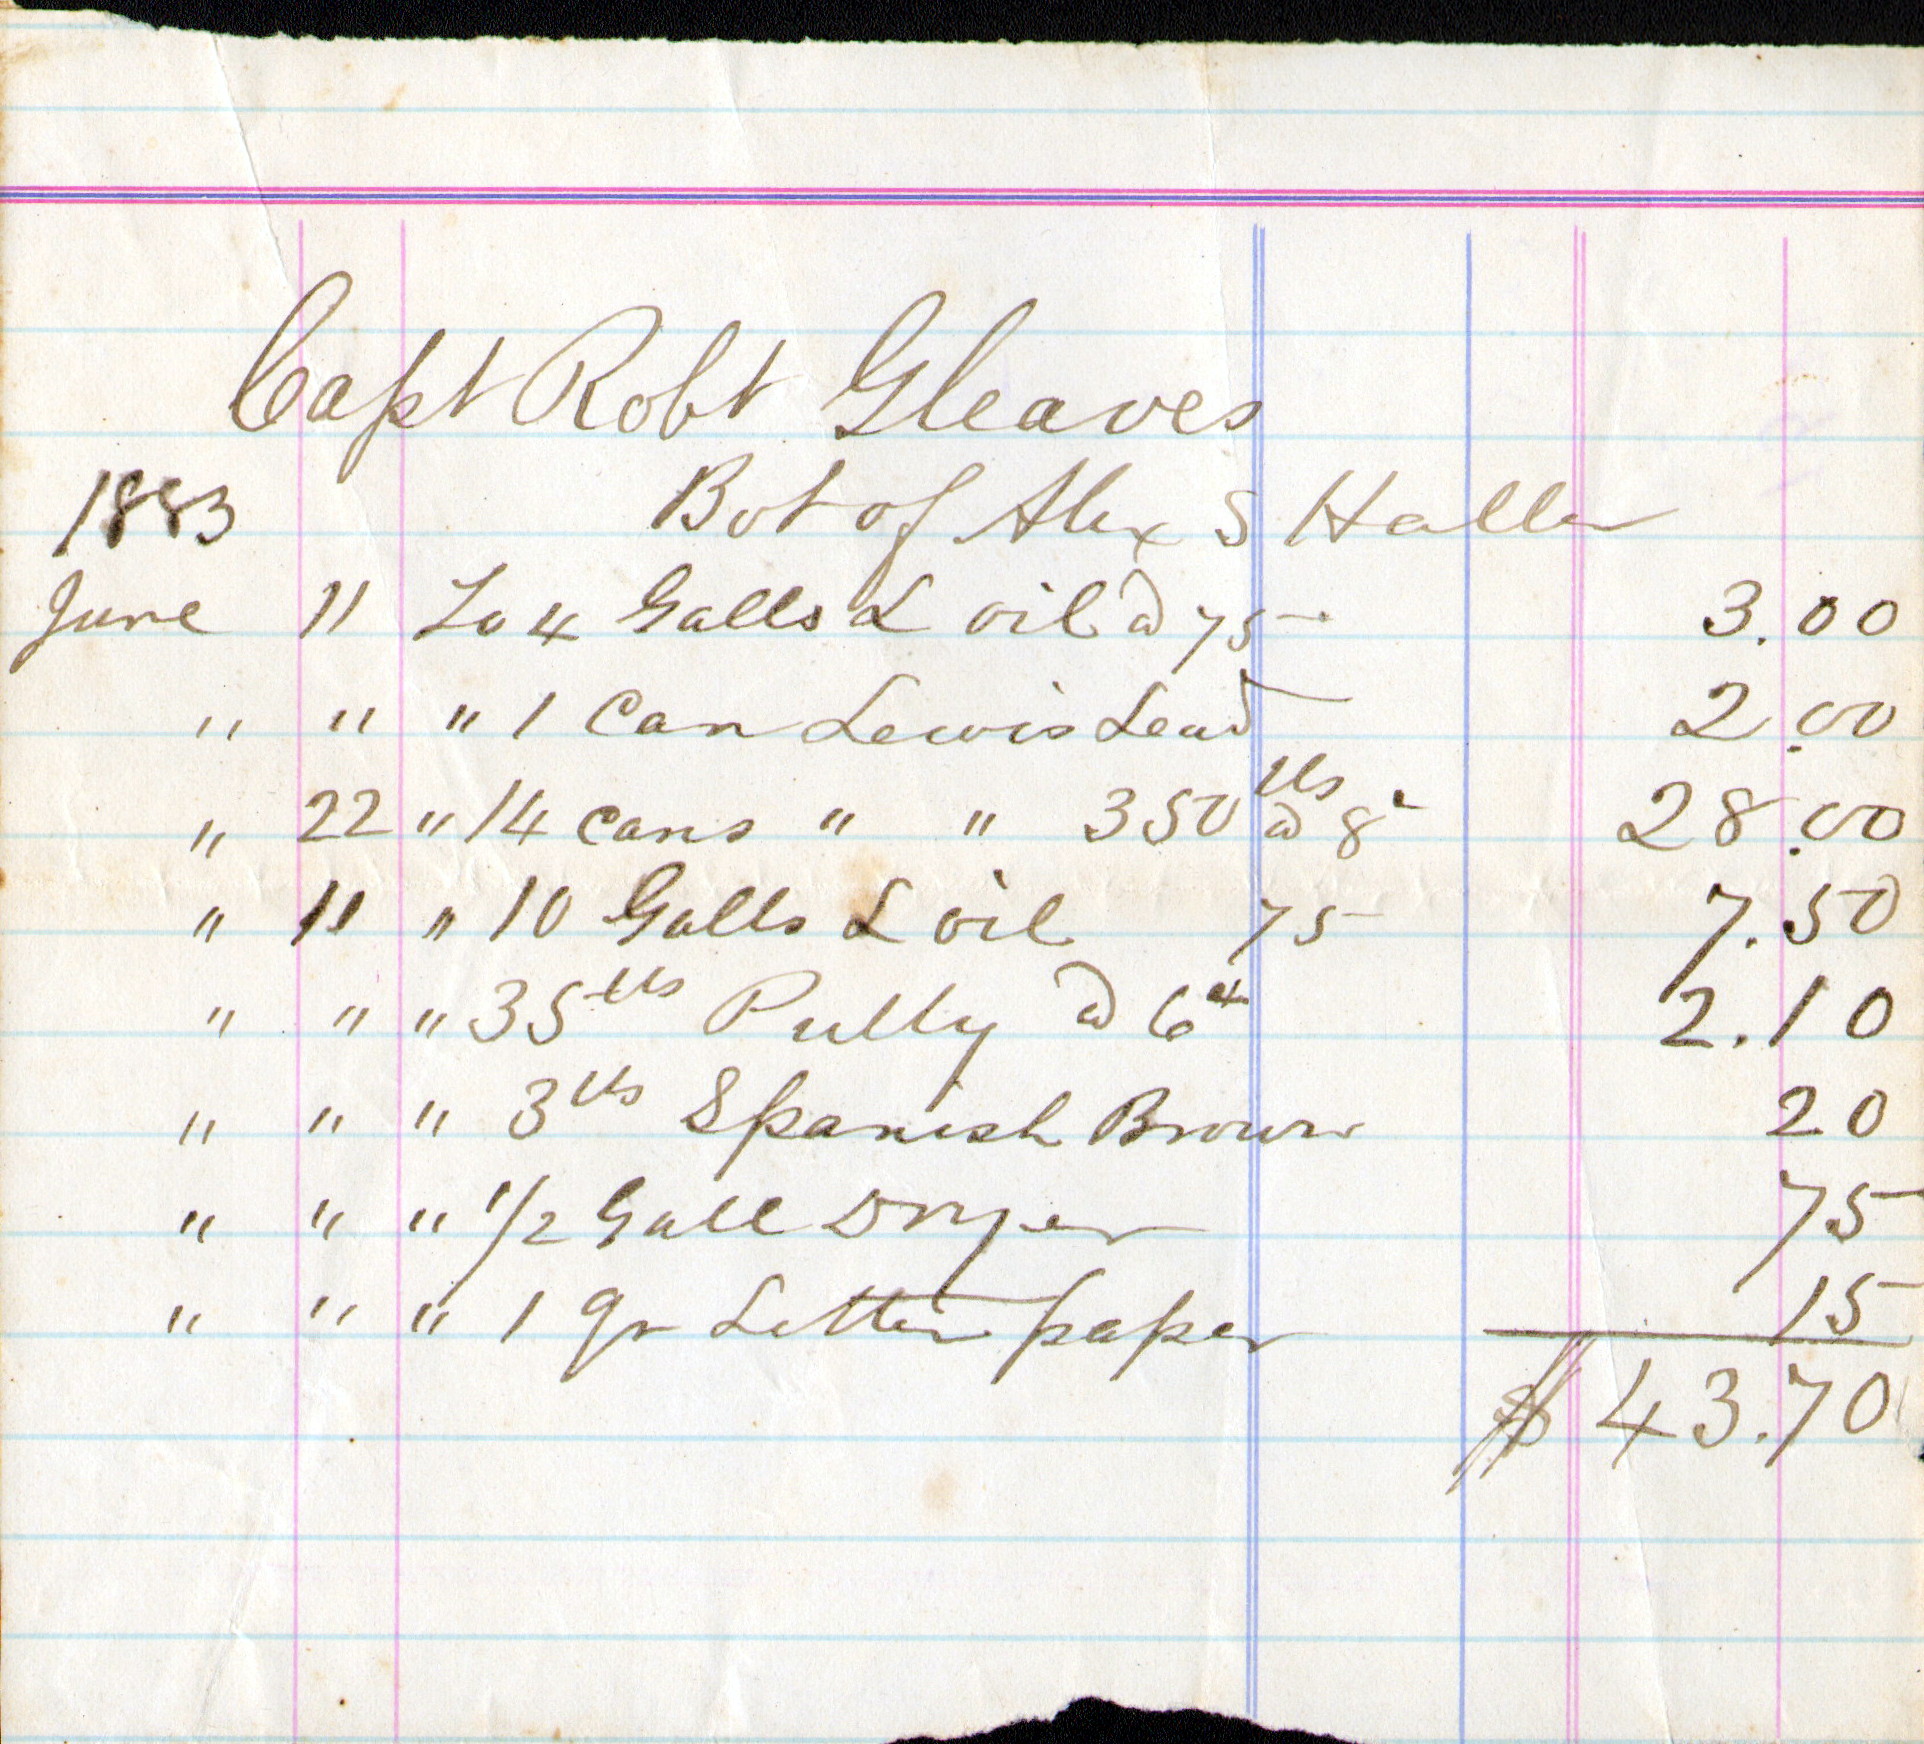 Capt Robt Gleaves
1883 Bot of Alex S Haller
June 11 To 4 Galls L oil @ 75 3.00
" " " 1 Can Lewis Lead 2.00
" 22 " 14 cans " " 350 lbs @ 8c 28.00
" 11 " 10 Galls L oil 75 7.50
" " " 35 lbs Putty @ 6 2.10
" " " 3 lbs Spanish Brown 20
" " " 1/2 Gall Dryer 75
" " " 1 qr Letter paper 15
$ 43.70